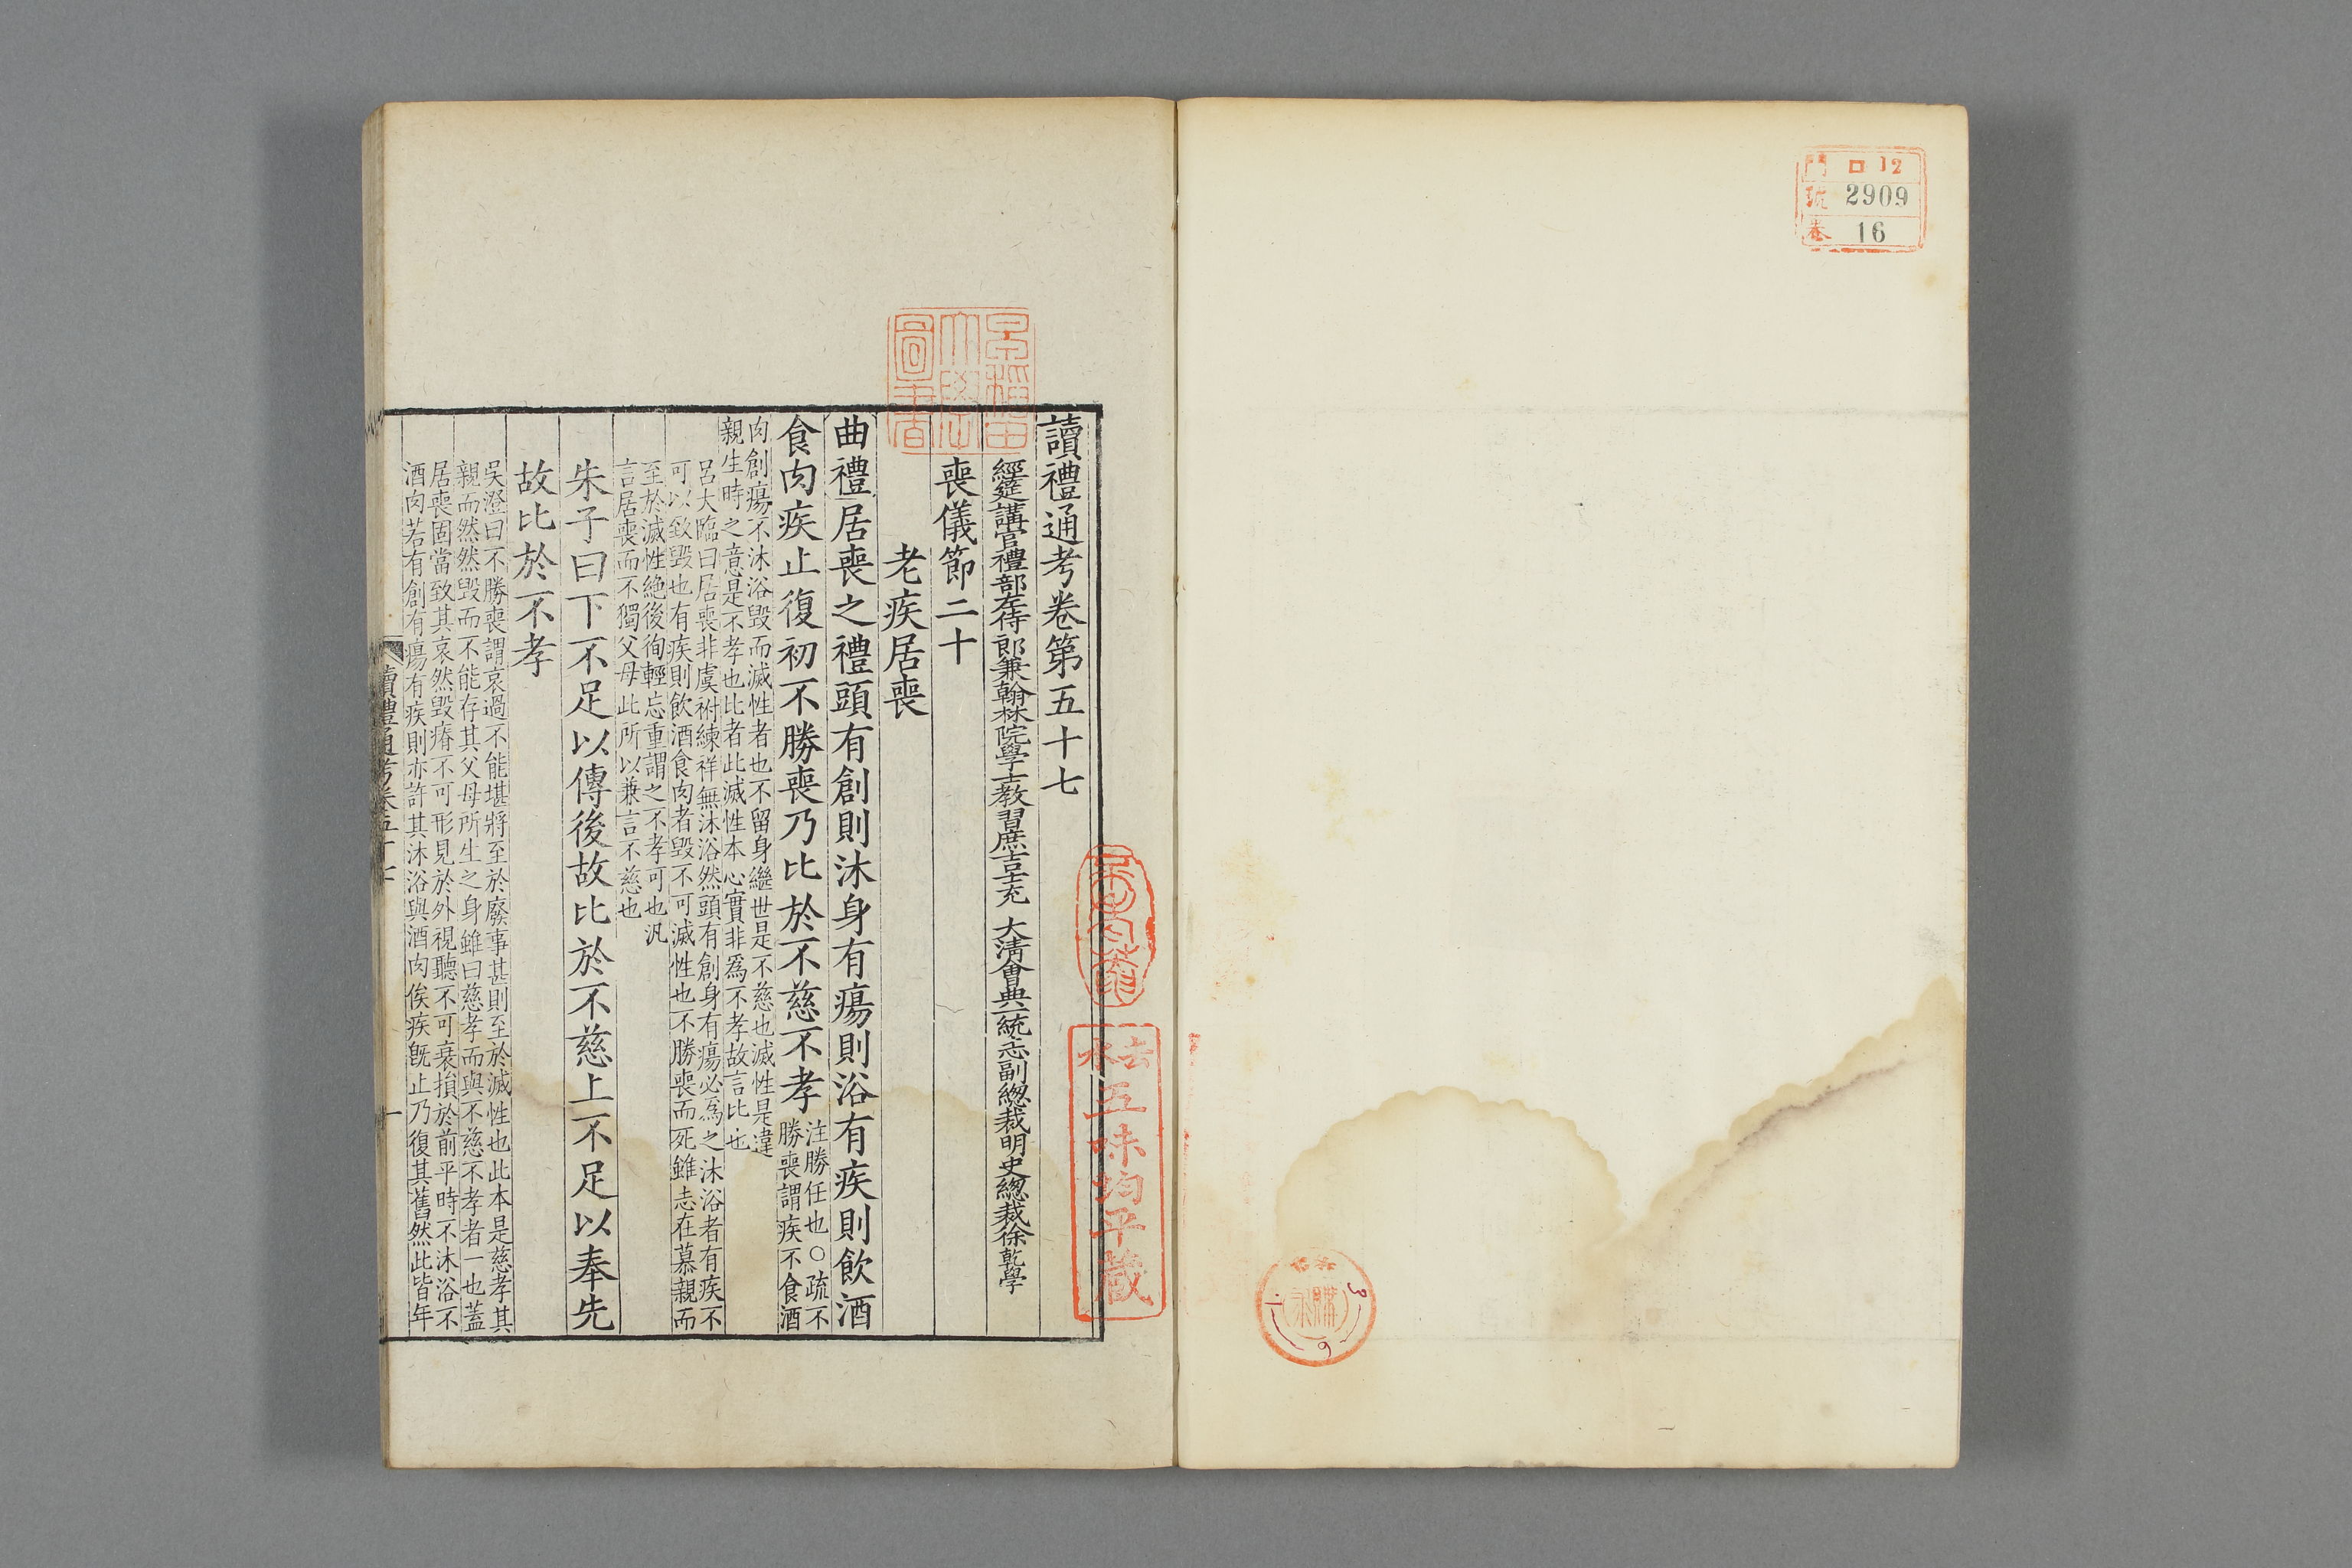 門 口12
號 2909
卷 16
購求
讀禮通考卷第五十七
經筵講官禮部左侍郎兼翰林院學士教習庶吉士充 大清會典一統志副總裁明史總裁徐乾學
喪儀節二十
老疾居喪
曲禮居喪之禮頭有創則沐身有瘍則浴有疾則飲酒
食肉疾止復初不勝喪乃比於不慈不孝
注勝任也○疏不
勝喪謂疾不食酒
肉創瘍不沐浴毀而滅性者也不留身繼世是不慈也滅性是違
親生時之意是不孝也比者此滅性本心實非爲不孝故言比也
呂大臨曰居喪非虞祔練祥無沐浴然頭有創身有瘍必爲之沐浴者有疾不
可以致毀也有疾則飲酒食肉者毀不可滅性也不勝喪而死雖志在慕親而
至於滅性絶後徇輕忘重謂之不孝可也汎
言居喪而不獨父母此所以兼言不慈也
朱子曰下不足以傳後故比於不慈上不足以奉先
故比於不孝
吳澄曰不勝喪謂哀過不能堪將至於廢事甚則至於滅性也此本是慈孝其
親而然然毀而不能存其父母所生之身雖曰慈孝而與不慈不孝者一也蓋
居喪固當致其哀然毀瘠不可形見於外視聽不可衰損於前平時不沐浴不
酒肉若有創有瘍有疾則亦許其沐浴與酒肉俟疾旣止乃復其舊然此皆年
讀禮通考卷五十七
一
早稻田
大學
圖書
五味均平蔵